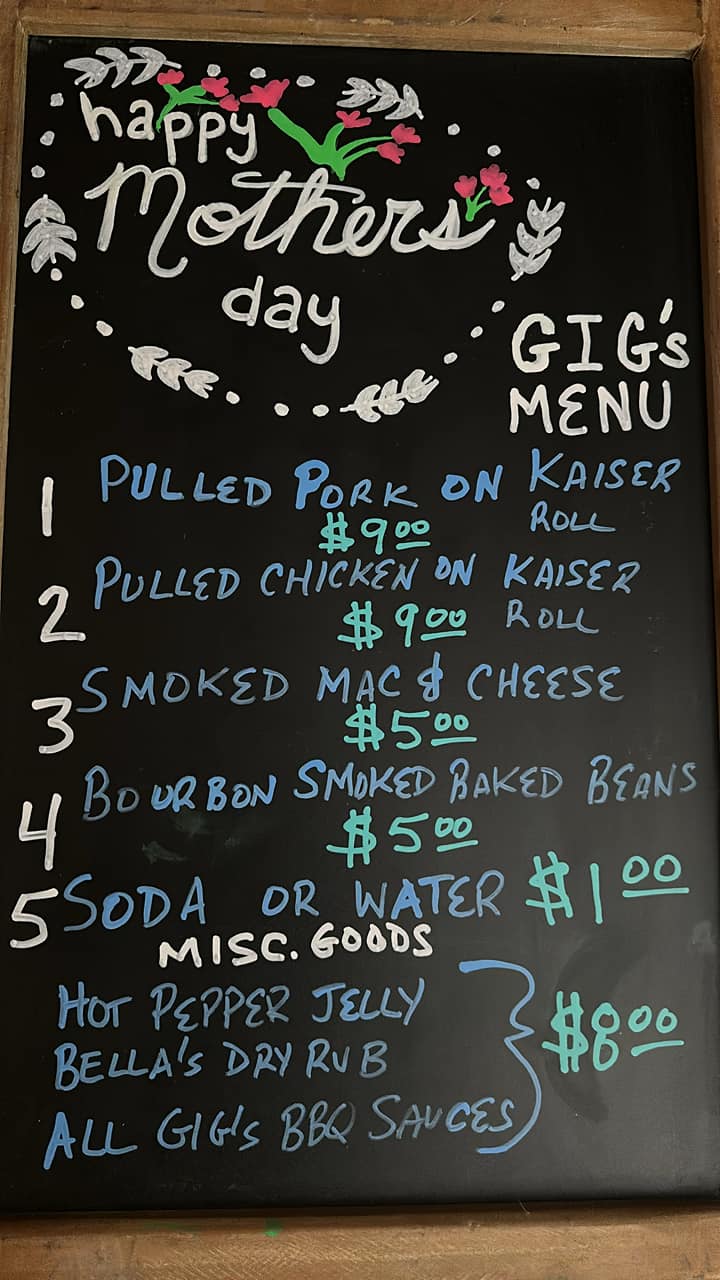 happy
Mothers
day
GIG's
MENU
1 PULLED PORK ON KAISER
ROLL
$9.00
2 PULLED CHICKEN ON KAISER
ROLL
$9.00
3 SMOKED MAC & CHEESE
$5.00
4 BOURBON SMOKED BAKED BEANS
$5.00
5 SODA OR WATER $1.00
MISC. GOODS
HOT PEPPER JELLY
BELLA'S DRY RUB
$8.00
ALL GIG's BBQ SAUCES